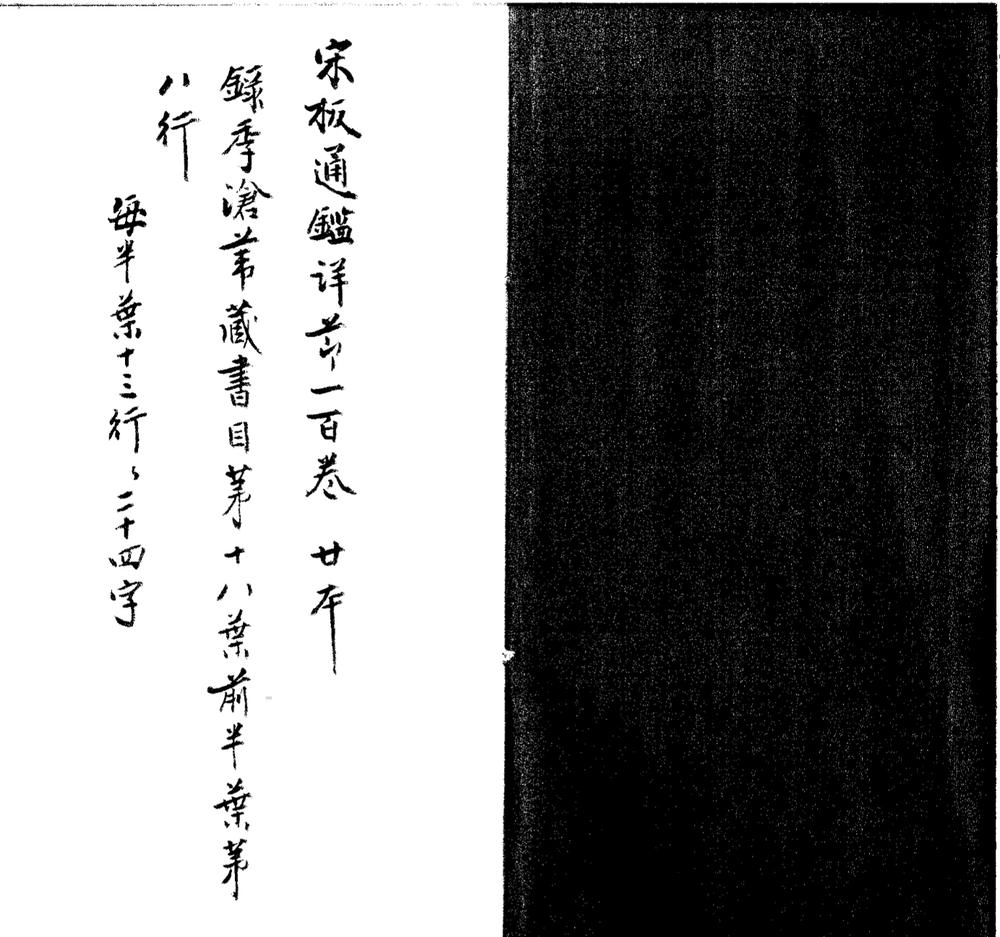 宋板通鑑详莭一百卷 廿本
錄季滄葦藏書目苐十八葉前半葉苐
八行
每半葉十三行〻二十四字